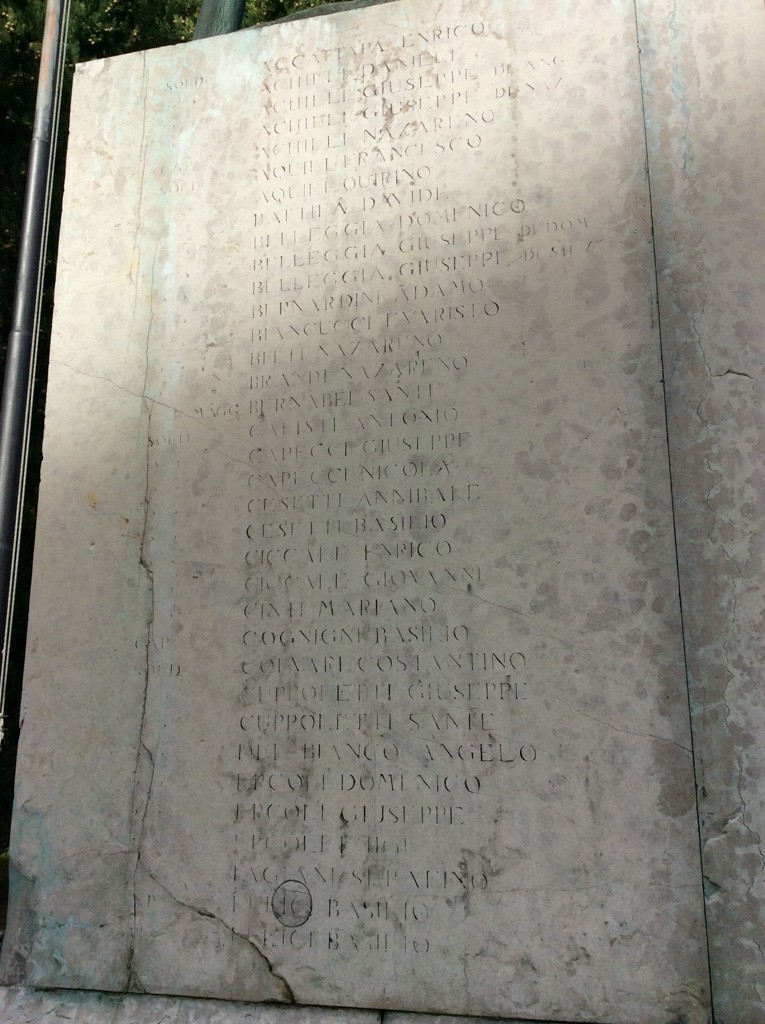 ACCATTAPA ENRICO
SOLD. ACHILLI DANIELE
ACHILLI GIUSEPPE DI ANG
ACHILLI GIUSEPPE DI NAZ
ACHILLI NAZARENO
AQUILI FRANCESCO
SOLD. AQUILI QUIRINO
DAVIDE
BELLEGGIA DOMENICO
BELLEGGIA GIUSEPPE DI DOM
BELLEGGIA GIUSEPPE
BERNARDINI ADAMO
BIANCUCCI EVARISTO
BITTI NAZARENO
BRANDI NAZARENO
MAGG. BURNABEI SANTE
SOLD. CALISTI ANTONIO
CAPECCI GIUSEPPE
CAPECCI NICOLA
CESETTI ANNIBALE
CESETTI BASILIO
CICCALE ENRICO
CICCALE GIOVANNI
CINTI MARIANO
CAP. COGNIGNI BASILIO
SOLD. COIVARI COSTANTINO
CUPPOLETTI GIUSEPPE
CUPPOLETTI SANTE
DEL BIANCO ANGELO
ERCOLI DOMENICO
ERCOLI GIUSEPPE
ERCOLI
FAGIANI SERAFINO
BASILIO
FELICI BASILIO